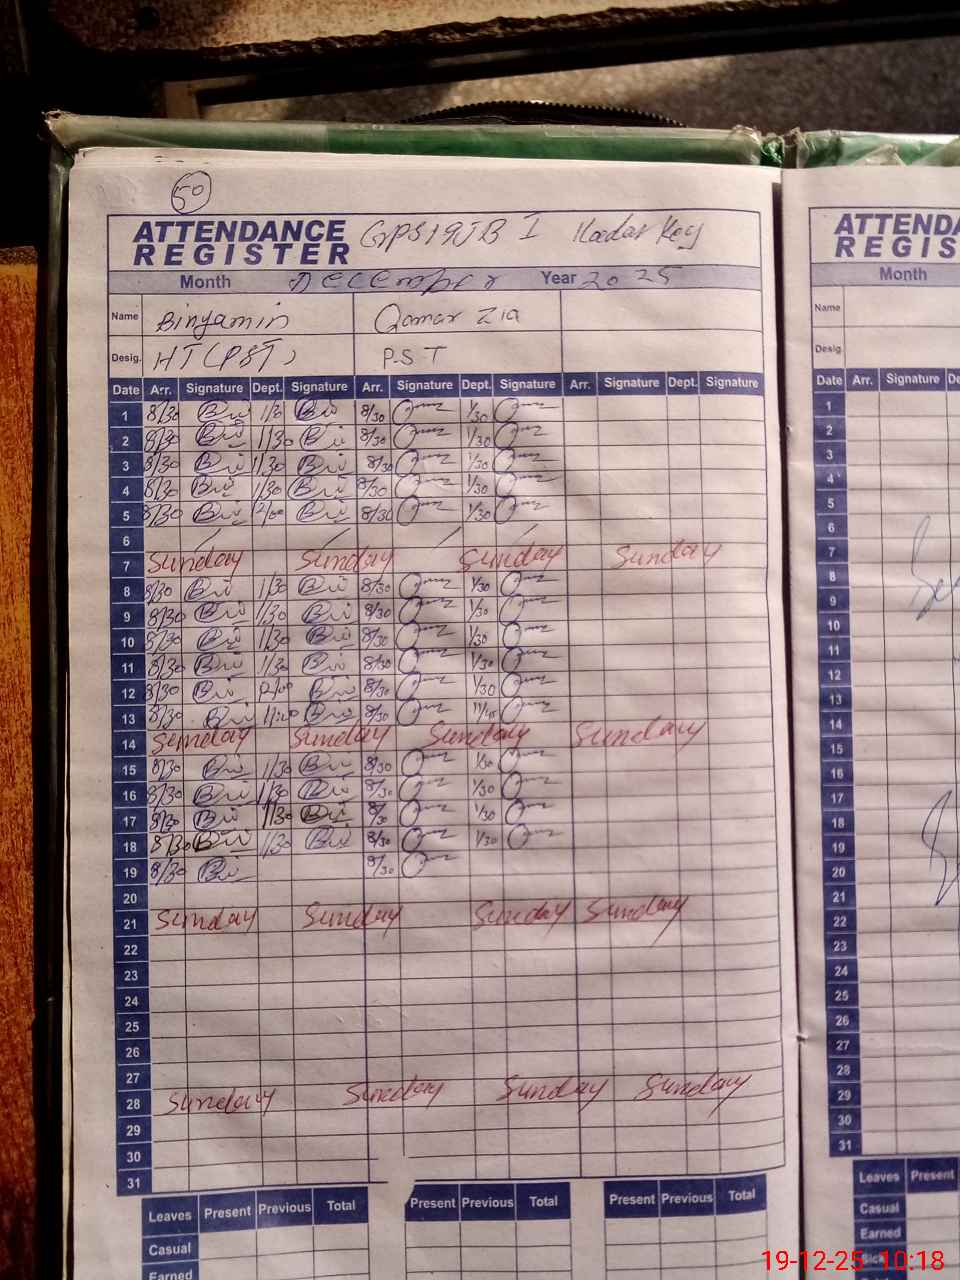 50
ATTENDANCE REGISTER GPS 19JB I Kadar Key
Month December Year 2025
Name Binyamin Qamar Zia
Desig. HT (PST) P.S.T
Date Arr. Signature Dept. Signature Arr. Signature Dept. Signature Arr. Signature Dept. Signature
1 8/30 1/30 8/30 1/30
2 8/30 1/30 8/30 1/30
3 8/30 1/30 8/30 1/30
4 8/30 1/30 8/30 1/30
5 8/30 12/00 8/30 1/30
6
7 Sunday Sunday Sunday Sunday
8 8/30 1/30 8/30 1/30
9 8/30 1/30 8/30 1/30
10 8/30 1/30 8/30 1/30
11 8/30 1/30 8/30 1/30
12 8/30 12/00 8/30 1/30
13 8/30 8/30 11/45
14 Sunday Sunday Sunday Sunday
15 8/30 1/30 8/30 1/30
16 8/30 1/30 8/30 1/30
17 8/30 1/30 8/30 1/30
18 8/30 1/30 8/30 1/30
19 8/30 8/30
20
21 Sunday Sunday Sunday Sunday
22
23
24
25
26
27
28 Sunday Sunday Sunday Sunday
29
30
31
Leaves Present Previous Total Present Previous Total Present Previous Total
Casual
Earned
ATTENDA
REGIS
Month
Name
Desig.
Date Arr. Signature De
1
2
3
4
5
6
7
8
9
10
11
12
13
14
15
16
17
18
19
20
21
22
23
24
25
26
27
28
29
30
31
Leaves Present
Casual
Earned
19-12-25 10:18